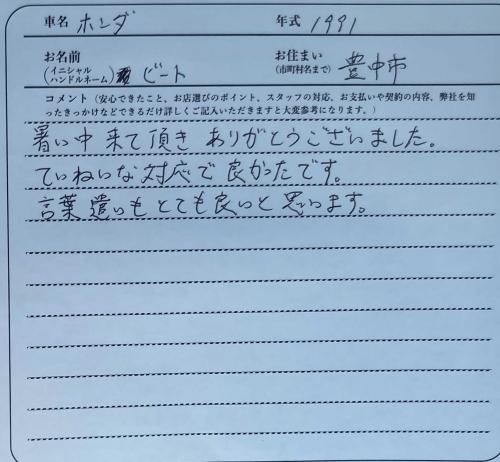 車名 ホンダ 年式 1991
お名前 (イニシャル ハンドルネーム) ビート お住まい (市町村名まで) 豊中市
コメント (安心できたこと、お店選びのポイント、スタッフの対応、お支払いや契約の内容、弊社を知
ったきっかけなどできるだけ詳しくご記入いただきますと大変参考になります。)
暑い中来て頂きありがとうございました。
ていねいな対応で良かったです。
言葉遣いもとても良いと思います。